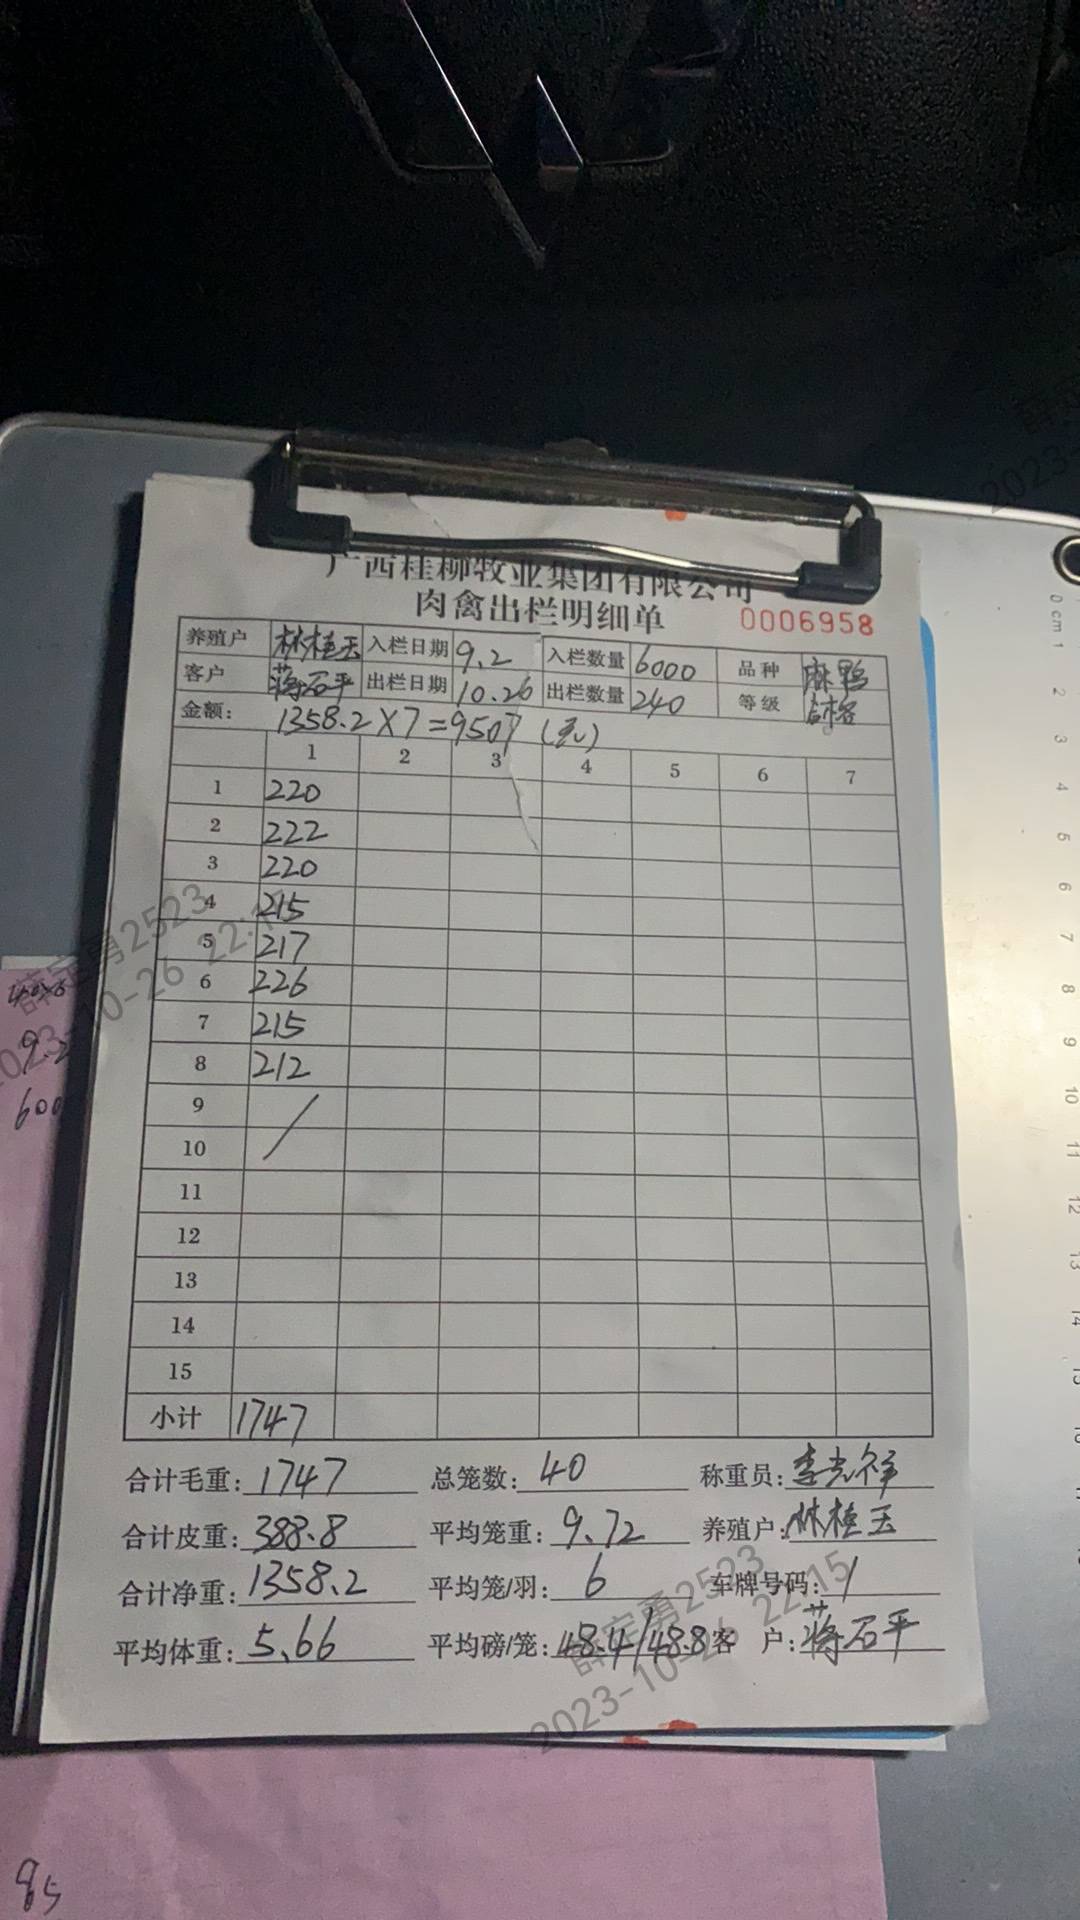 广西桂柳牧业集团有限公司
肉禽出栏明细单 0006958
养殖户 林桂玉 入栏日期 9.2 入栏数量 6000 品种 麻鸭
客户 蒋石平 出栏日期 10.26 出栏数量 240 等级 合格
金额: 1358.2×7=9507(元)
1 2 3 4 5 6 7
1 220
2 222
3 220
4 215
5 217
6 226
7 215
8 212
9
10
11
12
13
14
15
小计 1747
合计毛重: 1747 总笼数: 40 称重员: 李光祥
合计皮重: 388.8 平均笼重: 9.72 养殖户: 林桂玉
合计净重: 1358.2 平均笼/羽: 6 车牌号码: 1
平均体重: 5.66 平均磅/笼: 48.4/48.8 客 户: 蒋石平
薛定勇2523
2023-10-26 22:15
0 cm 1 2 3 4 5 6 7 8 9 10 11 12 13 14
9.2
600
85